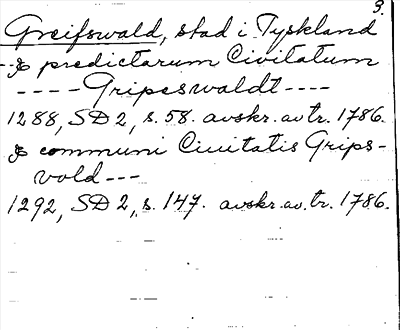 3.
Greifswald, stad i Tyskland
--& predictarum Civitatum
---- Gripeswaldt ----
1288, SD 2, s. 58. avskr. av tr. 1786.
& communi Ciuitatis Grips-
vold ---
1292, SD 2, s. 147. avskr. av. tr. 1786.